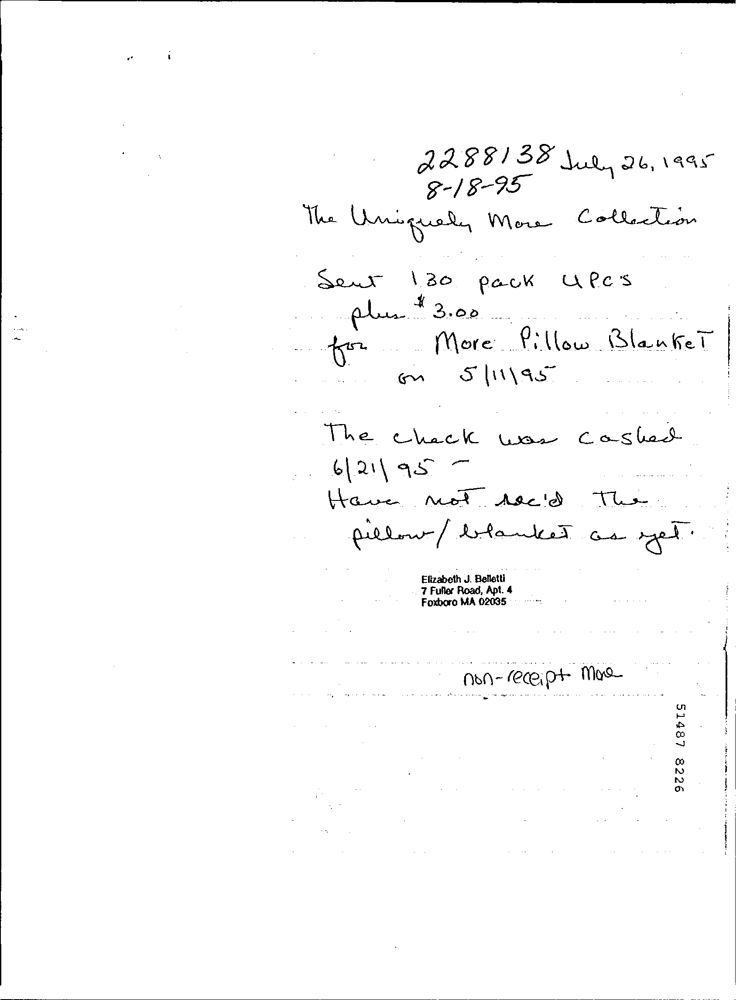 2288138 July 26, 1995
8-18-95
The Uniquely More Collection
Sent 130 pack UPC's
plus $3.00
for More Pillow Blanket
on 5/11/95
The check was cashed
6/21/95 -
Have not rec'd the
pillow/blanket as yet.
Elizabeth J. Belletti
7 Fuller Road, Apt. 4
Foxboro MA 02035
non-receipt More
51487 8226